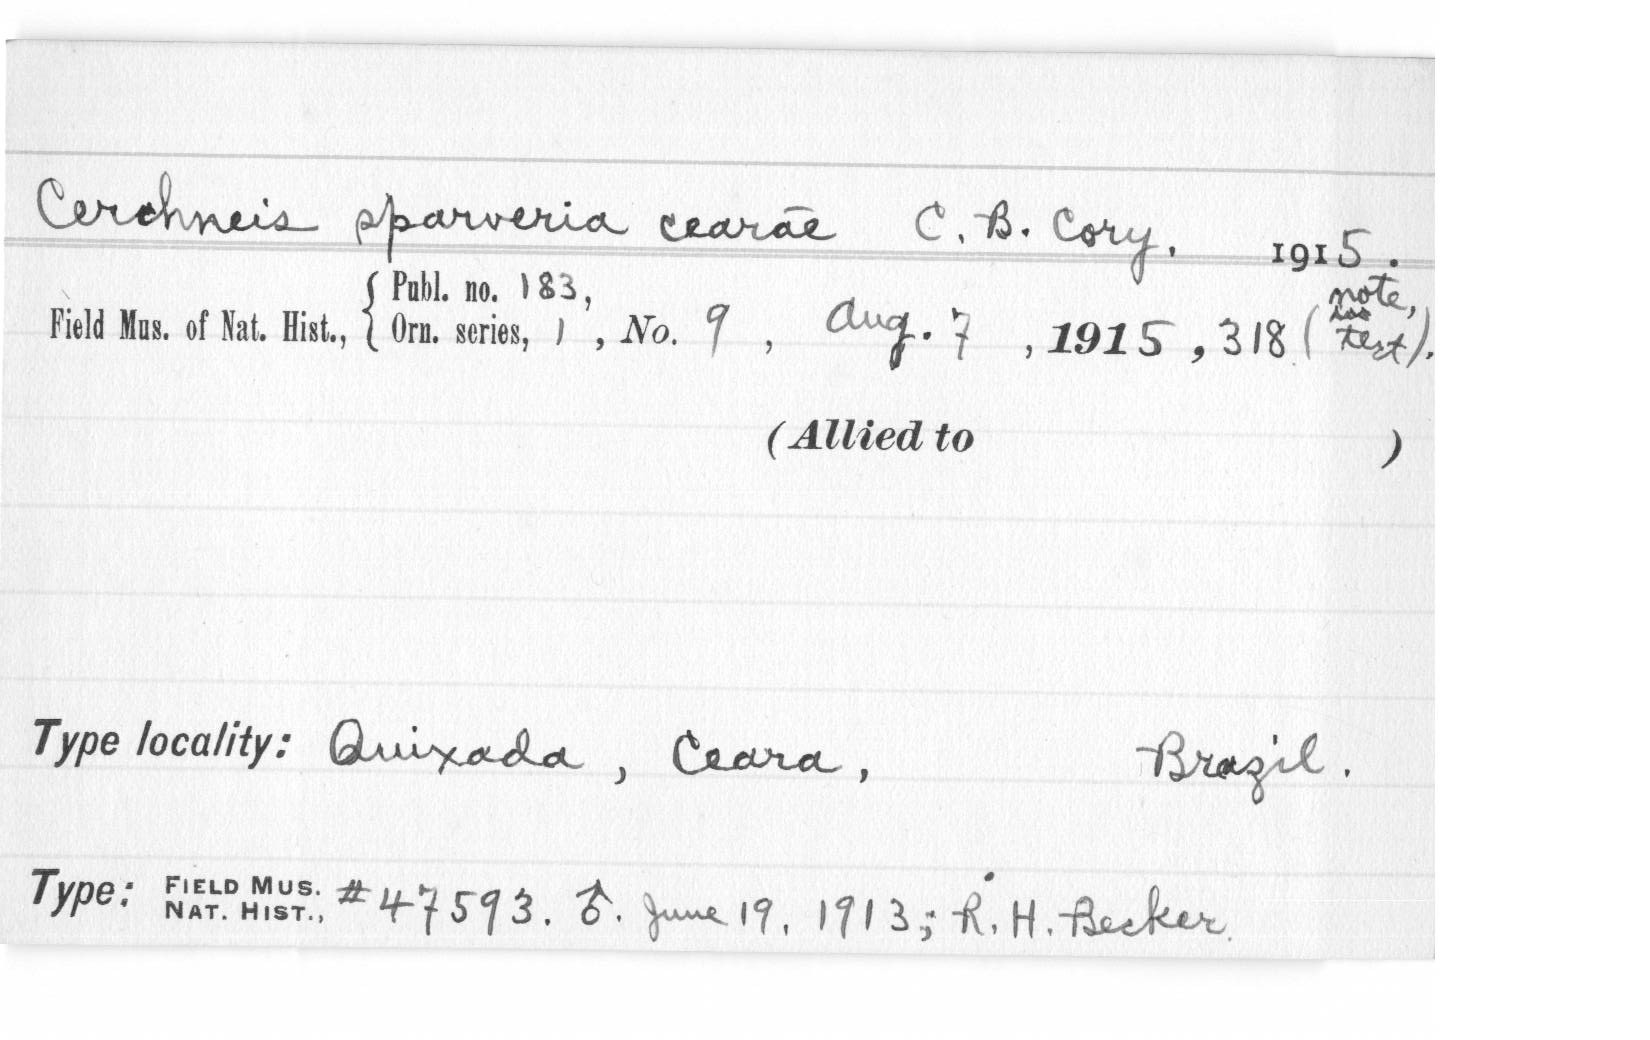 Cerchneis sparveria cearae C. B. Cory. 1915.
Field Mus. of Nat. Hist., { Publ. no. 183,
Orn. series, 1, No. 9, Aug. 7, 1915, 318 (note, in text).
(Allied to )
Type locality: Quixada, Ceara, Brazil.
Type: FIELD MUS. NAT. HIST., #47593. ♂. June 19, 1913; R. H. Becker.